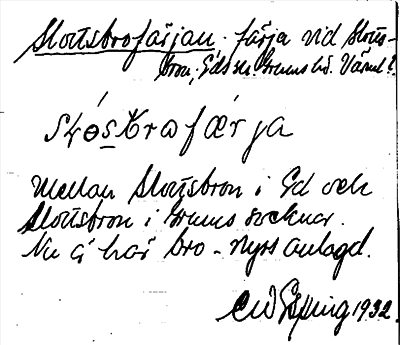 Slottsbrofärjan. färja vid Slotts-
bron, Eds sn. Grums hd. Värml.
Mellan Slottsbron i Ed och
Slottsbron i Grums socknar.
Nu är här bro - nyss anlagd.
1932.